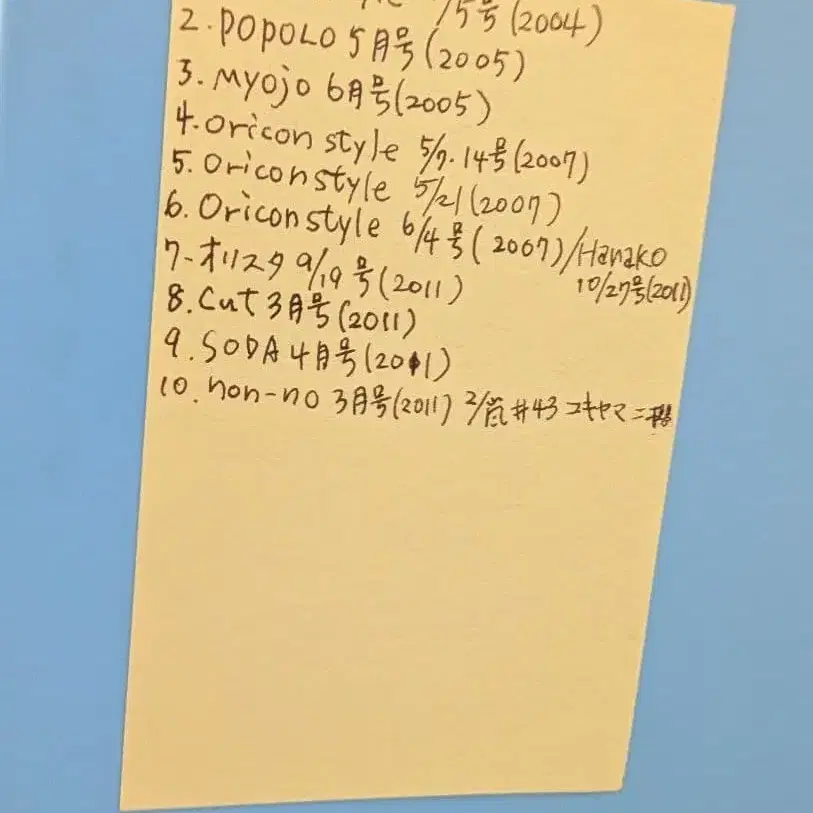 /5号(2004)
2. POPOLO 5月号(2005)
3. Myojo 6月号(2005)
4. Oricon style 5/7.14号(2007)
5. Oricon style 5/21(2007)
6. Oricon style 6/4号(2007)/Hanako
10/27号(2011)
7. オリスタ 9/19号(2011)
8. Cut 3月号(2011)
9. SODA 4月号(2011)
10. non-no 3月号(2011) 2/嵐 #43 ユキヤマニ